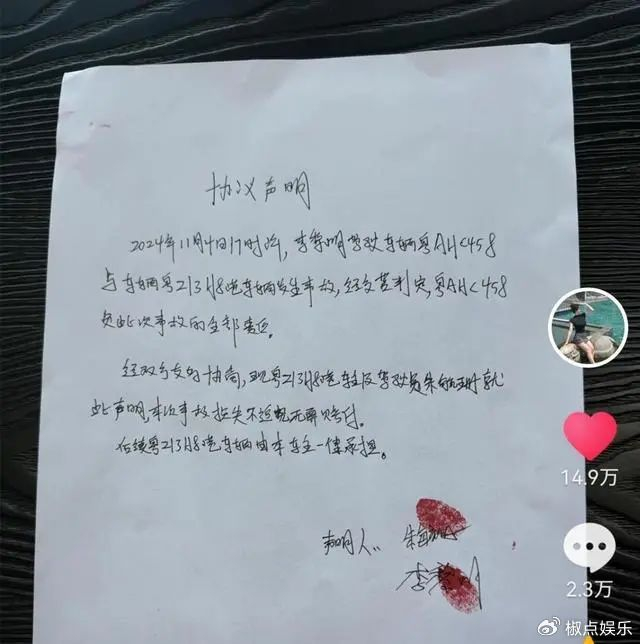 协议声明
2024年11月4日17时许,李春明驾驶车辆粤AH<458
与车辆粤Z13H8港车辆发生事故,经交警判定,粤AH<458
负此次事故的全部责任。
经双方友好协商,现粤Z13H8港车主及驾驶员朱 就
此声明本次事故损失不追究无需赔付。
后续粤Z13H8港车辆由本车主一律承担。
声明人:朱
李 明
14.9万
2.3万
椒点娱乐